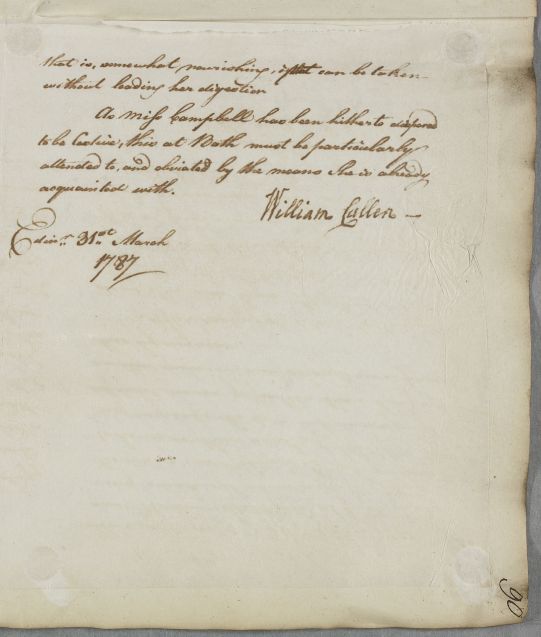 that is, somewhat nourishing, if that can be taken
without loading her digestion
As Miss Campbell has been hitherto disposed
to be Costive, this at Bath must be particularly
attended to, and obviated by the means she is already
acquainted with.
William Cullen
Edinr. 31st March
1787
90